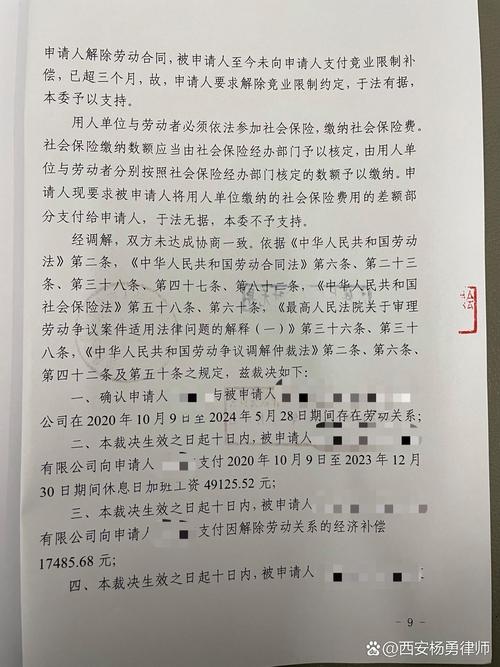 申请人解除劳动合同，被申请人至今未向申请人支付竞业限制补
偿，已超三个月，故，申请人要求解除竞业限制约定，于法有据，
本委予以支持。
用人单位与劳动者必须依法参加社会保险，缴纳社会保险费。
社会保险缴纳数额应当由社会保险经办部门予以核定，由用人单
位与劳动者分别按照社会保险经办部门核定的数额予以缴纳。申
请人现要求被申请人将用人单位缴纳的社会保险费用的差额部
分支付给申请人，于法无据，本委不予支持。
经调解，双方未达成协商一致。依据《中华人民共和国劳动
法》第二条，《中华人民共和国劳动合同法》第六条、第二十三
条、第三十八条、第四十七条、第八十二条，《中华人民共和国
社会保险法》第五十八条、第六十条，《最高人民法院关于审理
劳动争议案件适用法律问题的解释（一）》第三十六条、第三十
八条，《中华人民共和国劳动争议调解仲裁法》第二条、第六条、
第四十二条及第五十条之规定，兹裁决如下：
一、确认申请人 与被申请人
公司在 2020 年 10 月 9 日至 2024 年 5 月 28 日期间存在劳动关系；
二、本裁决生效之日起十日内，被申请人
有限公司向申请人 支付 2020 年 10 月 9 日至 2023 年 12 月
30 日期间休息日加班工资 49125.52 元；
三、本裁决生效之日起十日内，被申请人
有限公司向申请人 支付因解除劳动关系的经济补偿
17485.68 元；
四、本裁决生效之日起十日内，被申请人
- 9 -
@西安杨勇律师